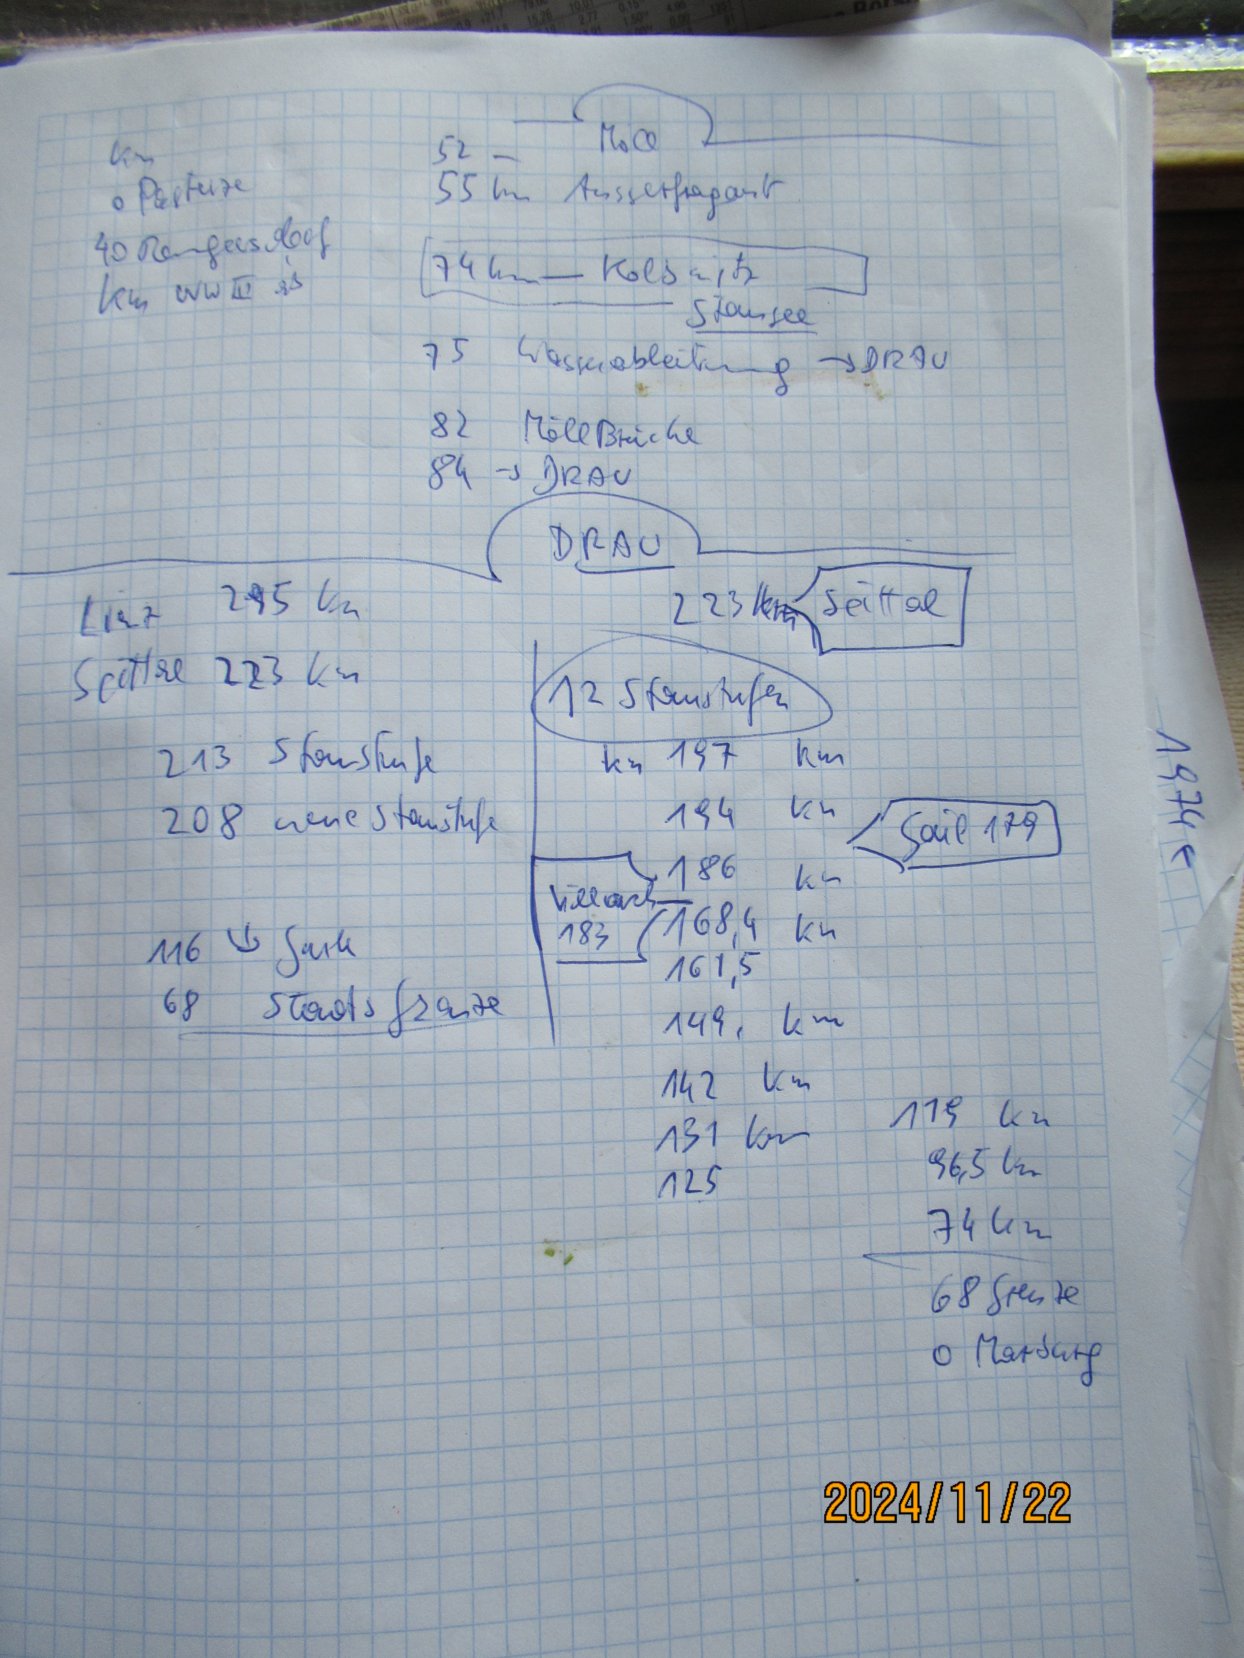 Möll
km
0 Pasterze
40 Rangersdorf
km WW III
52 –
55 km Ausserfragant
74 km — Kolbnitz
Stausee
75 Wasserableitung → DRAU
82 MöllBrücke
84 → DRAU
DRAU
Linz 245 km
Spittal 223 km
213 Staustufe
208 neue Staustufe
116 ↓
68 Staatsgrenze
223 km Spittal
12 Staustufen
km 197 km
194 km
Gail 179
186 km
Villach
183
168,4 km
161,5
149, km
142 km
131 km
125
119 km
96,5 km
74 km
68 Grenze
0 Marburg
1974
2024/11/22